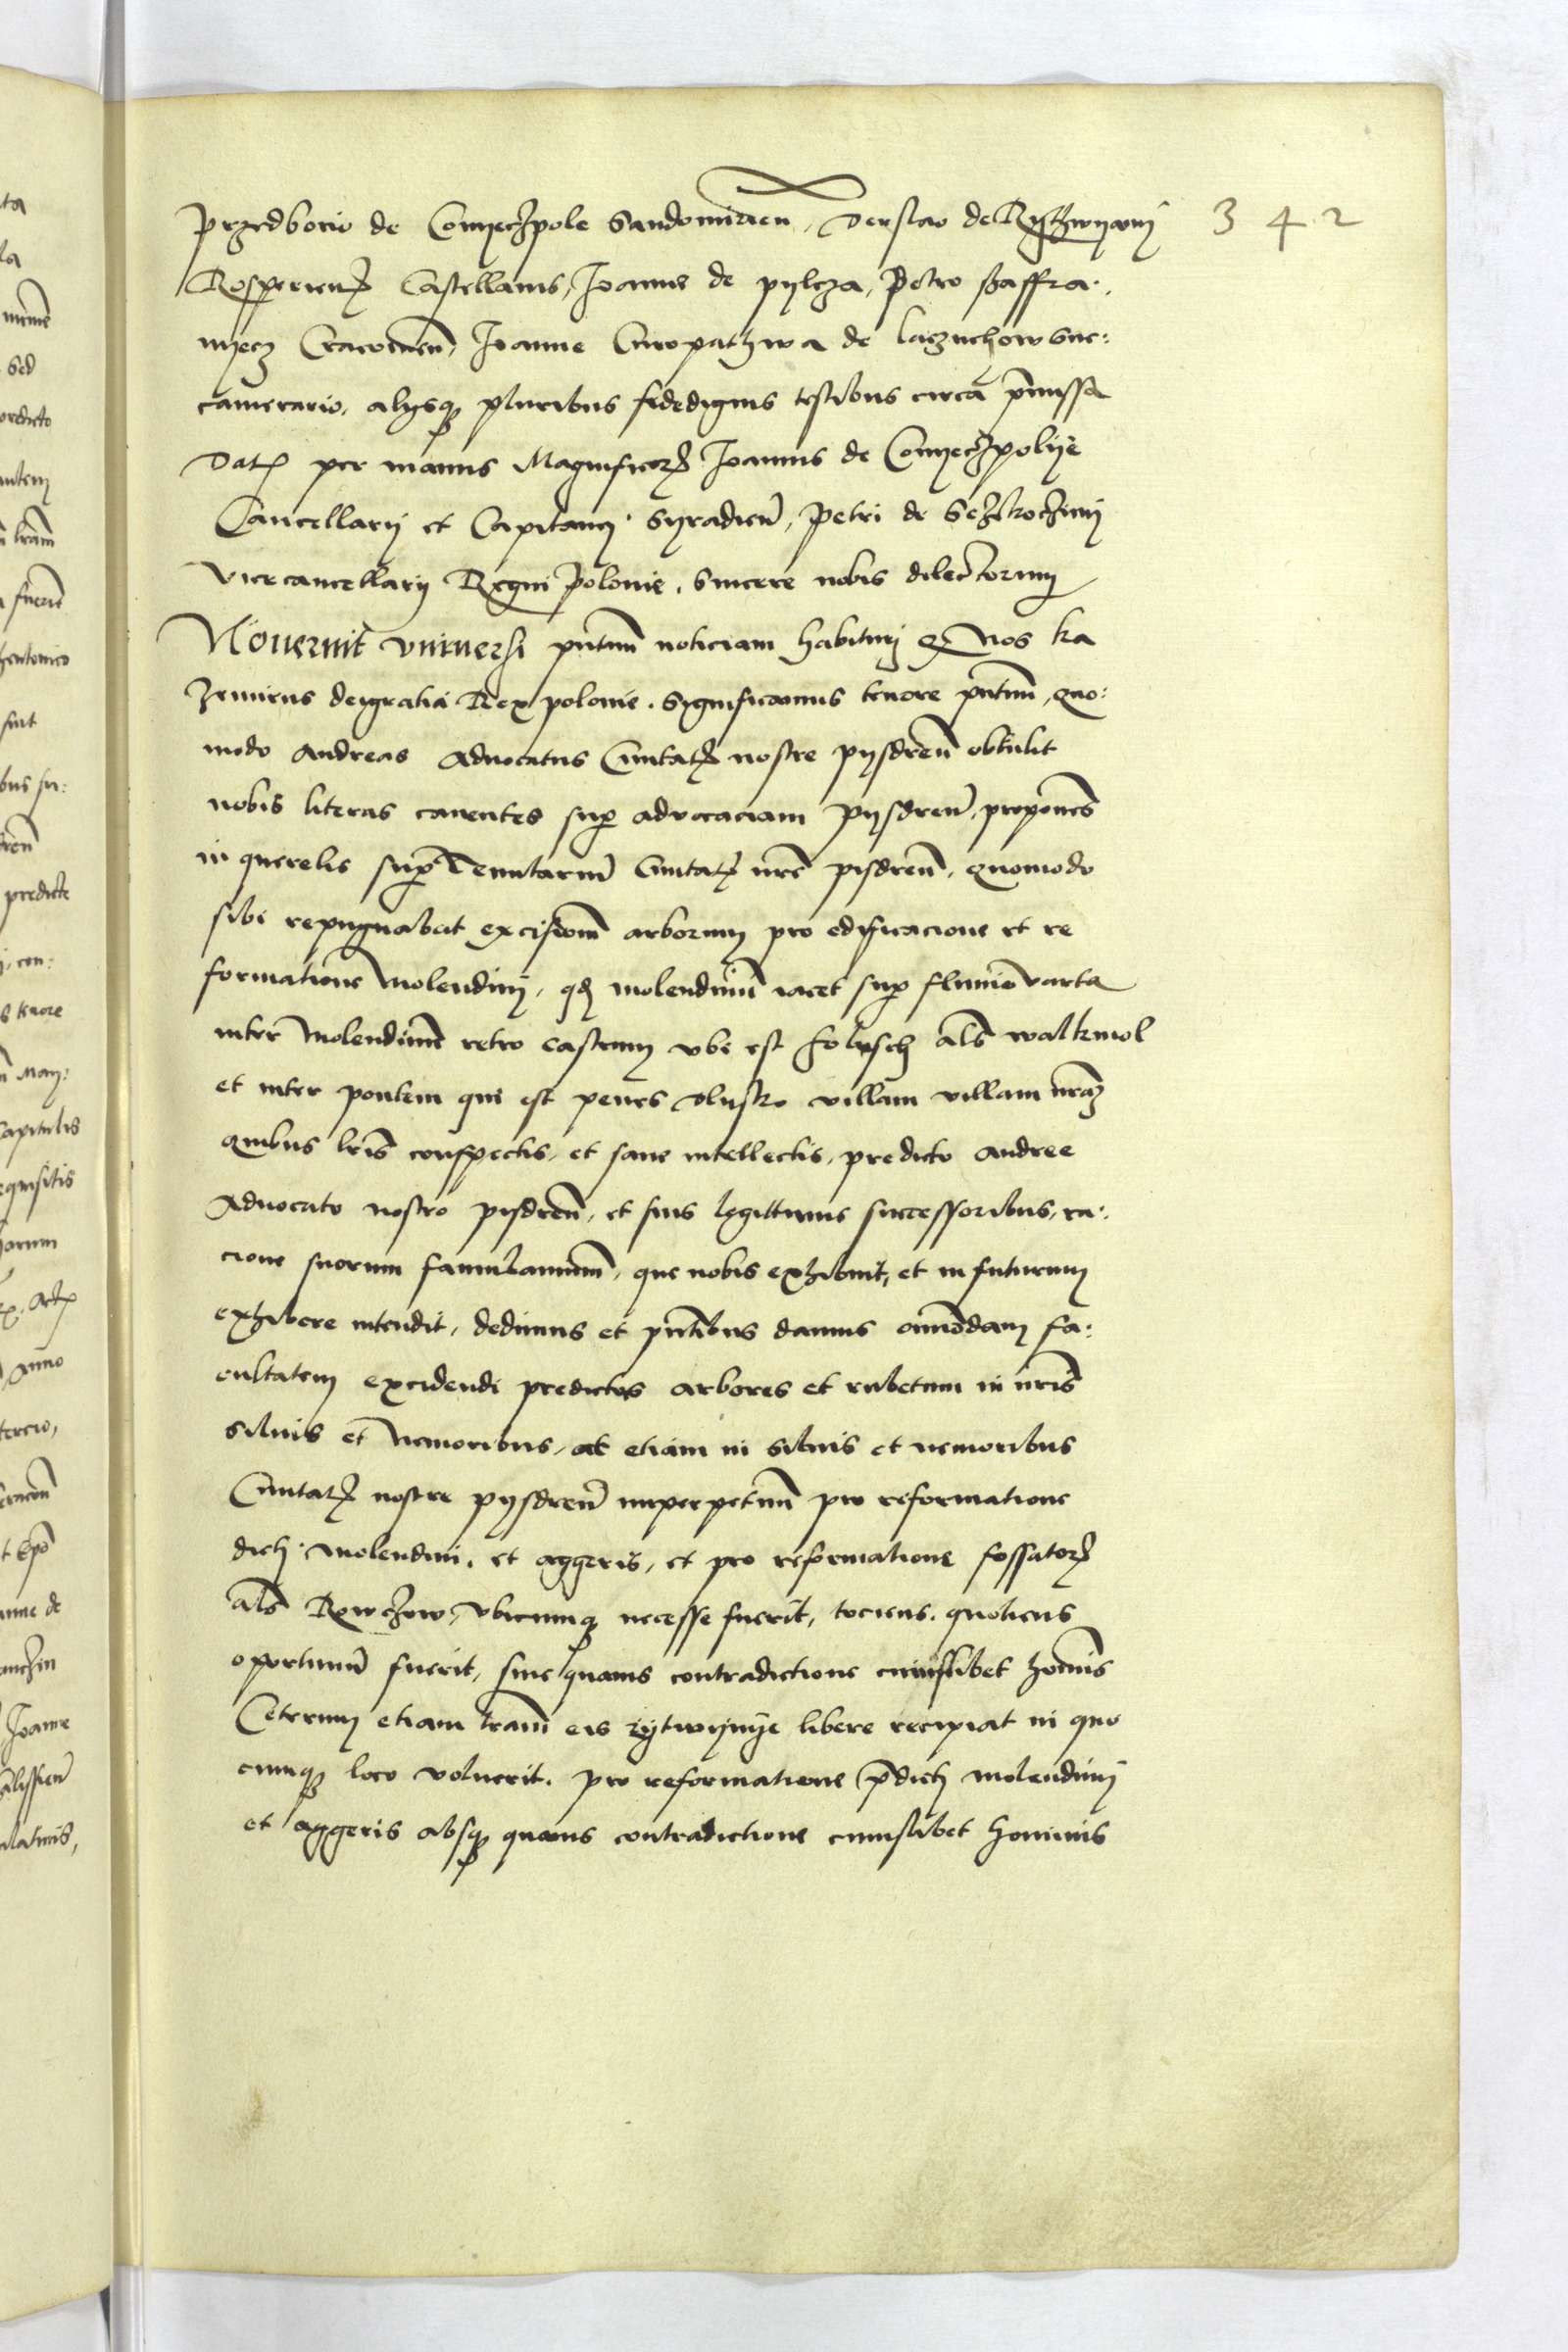 Przedborio de Conyeczpole Sandomirien̄, Derslao de Rythwyany 342
Rosperien̄ Castellanis, Joanne de pylcza, Petro Schaffra:
nyecz Cracouien̄, Joanne Curopathwa de laczuchow suc:
camerario, alysq̨ pluribus fidedignis testibus circa p̄missa
Datꝭ per manus Magnificorꝝ Joannis de Conyeczpolye
Cancellary et Capitanei Syradien̄, Petri de Sczekoczini
vicecancellary Regni polonie, sincere nobis dilectorum
Nouerint vniuersi pn̄tium noticiam habituri qͦ Nos ka
zimirus deigratia Rex polonie. Significamus tenore pn̄tium, quo:
modo Andreas Aduocatus Ciuitatꝭ nostre pysdren̄ obtulit
nobis literas canentes sup aduocaciam pysdren̄, proponens
in querelis sup Tenutarium Ciuitatꝭ nr̄e pisdren̄, quomodo
sibi repugnabat excisionem arborum pro edificacione et re
formatione Molendini, qd molendinum iacet sup fluuio varta
inter Molendinum retro castrum vbi est folusch al̄s walkmol
et inter pontem qui est penes villam villam nr̄am
quibus lr̄is conspectis, et sane intellectis, predicto Andree
Aduocato nostro pisdren̄, et suis legittimis successoribus, ra:
cione suorum famulaminum, que nobis exhibuit, et in futurum
exhibere intendit, dedimus et pn̄tibus damus om̄imodam fa:
cultatem excidendi predictas arbores et rubetum in nr̄is
siluis et Nemoribus, at etiam in siluis et nemoribus
Ciuitatꝭ nostre pysdren̄ imperpetuum pro reformatione
dicti Molendini, et aggeris, et pro reformatione fossatorꝝ
al̄s Rowczow, vbicumq̨ necesse fuerit, tociens, quotiens
oportunum fuerit, sine quauis contradictione cuiuslibet hominis
Ceterum etiam terram eis zytwijnye libere recipiat in quo
cumq̨ loco voluerit, pro reformatione p̄dicti molendini
et aggeris absq̨ quauis contradictione cuiuslibet hominis